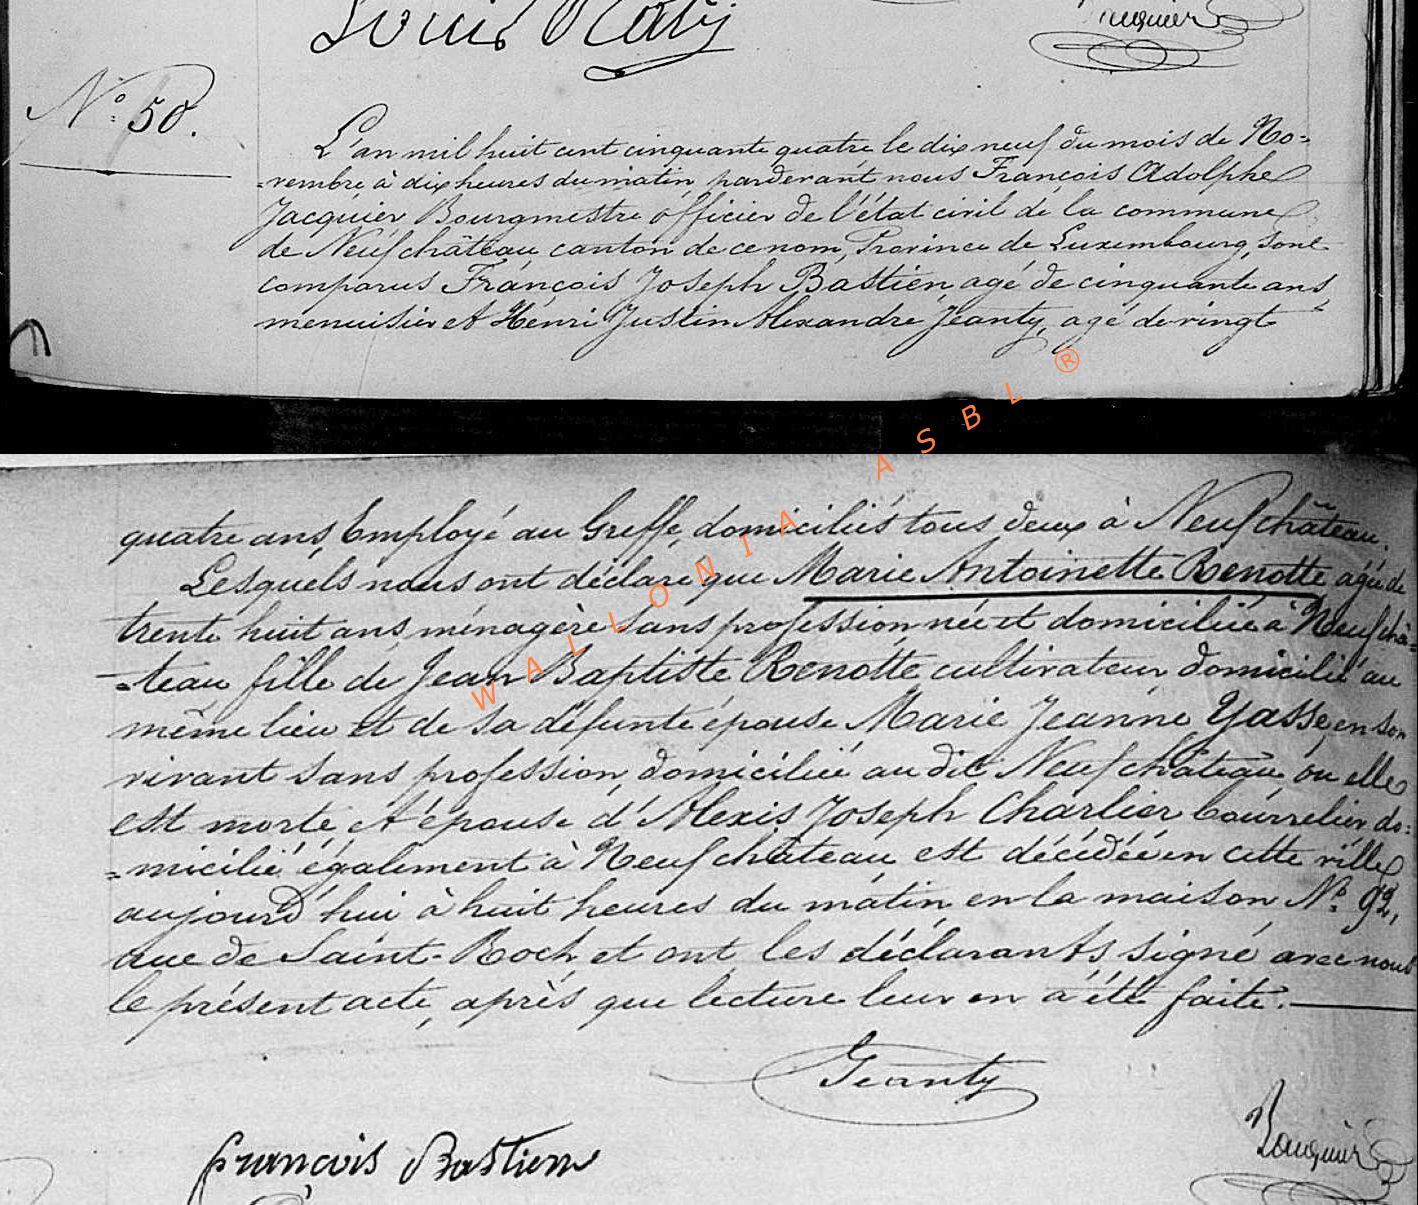 Louis Naty
Jacquier
N° 50.
L'an mil huit cent cinquante quatre le dix neuf du mois de No=
=vembre à dix heures du matin, pardevant nous François Adolphe
Jacquier Bourgmestre officier de l'état civil de la commune
de Neufchâteau canton de ce nom, Province de Luxembourg, sont
comparus François Joseph Bastien agé de cinquante ans
menuisier et Henri Justin Alexandre Jeanty, agé de vingt
quatre ans, Employé au Greffe, domiciliés tous deux à Neufchâteau.
Lesquels nous ont déclaré que Marie Antoinette Renotte agée de
trente huit ans, ménagère sans profession née et domiciliée à Neufchâ=
=teau fille de Jean Baptiste Renotte cultivateur domicilié au
même lieu et de sa défunte épouse Marie Jeanne Yasse, en son
vivant sans profession, domiciliée au dit Neufchâteau, ou elle
est morte, et épouse d'Alexis Joseph Charlier bourrelier do=
=micilié également à Neufchâteau, est décédée en cette ville
aujourd'hui à huit heures du matin en la maison N° 92,
rue de Saint-Roch et ont les déclarants signé avec nous
le présent acte, après que lecture leur en a été faite.
Jeanty
françois Bastien
Jacquier
WALLONIA ASBL ®